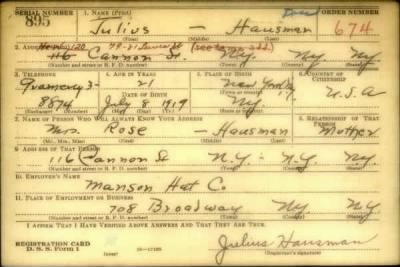 SERIAL NUMBER 1. NAME (Print) ORDER NUMBER
895 Julius — Hausman 674
(First) (Middle) (Last)
2. ADDRESS (Print)
116 Cannon St. N.Y. N.Y. N.Y.
(Number and street or R. F. D. number) (Town) (County) (State)
3. TELEPHONE 4. AGE IN YEARS 5. PLACE OF BIRTH 6. COUNTRY OF CITIZENSHIP
Gramercy 3- 21 New York
8874 DATE OF BIRTH July 8 1919 N.Y. U.S.A
(Exchange) (Number) (Mo.) (Day) (Yr.) (State or country)
7. NAME OF PERSON WHO WILL ALWAYS KNOW YOUR ADDRESS 8. RELATIONSHIP OF THAT PERSON
Mrs. Rose — Hausman Mother
(Mr., Mrs., Miss) (First) (Middle) (Last)
9. ADDRESS OF THAT PERSON
116 Cannon St N.Y. - N.Y. N.Y.
(Number and street or R. F. D. number) (Town) (County) (State)
10. EMPLOYER'S NAME
Manson Hat C.
11. PLACE OF EMPLOYMENT OR BUSINESS
708 Broadway N.Y. N.Y.
(Number and street or R. F. D. number) (Town) (County) (State)
I AFFIRM THAT I HAVE VERIFIED ABOVE ANSWERS AND THAT THEY ARE TRUE.
REGISTRATION CARD
D. S. S. Form 1 Julius Hausman
(Registrant's signature)